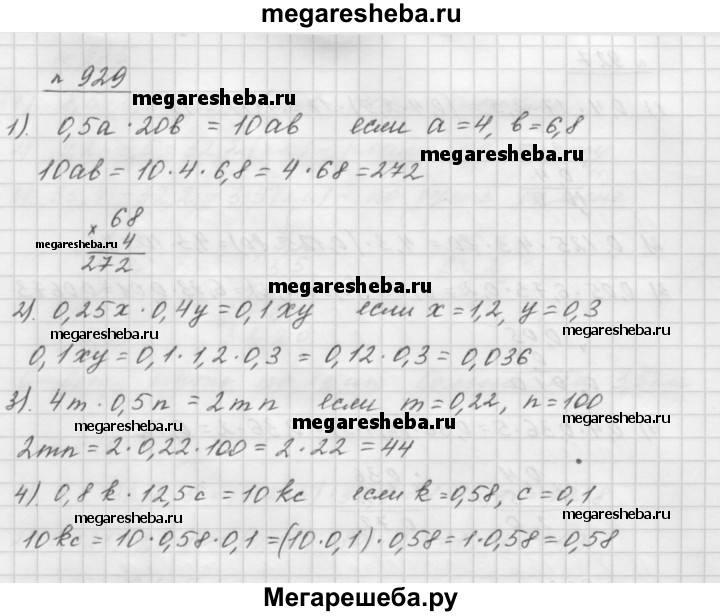 megaresheba.ru
n 929
megaresheba.ru
1). 0,5a · 20b = 10ab если a = 4, b = 6,8
megaresheba.ru
10ab = 10 · 4 · 6,8 = 4 · 68 = 272
× 68
megaresheba.ru 4
272
megaresheba.ru
2). 0,25x · 0,4y = 0,1xy если x = 1,2, y = 0,3
megaresheba.ru
0,1xy = 0,1 · 1,2 · 0,3 = 0,12 · 0,3 = 0,036
3). 4m · 0,5n = 2mn если m = 0,22, n = 100
megaresheba.ru megaresheba.ru megaresheba.ru
2mn = 2 · 0,22 · 100 = 2 · 22 = 44
4). 0,8k · 12,5c = 10kc если k = 0,58, c = 0,1
megaresheba.ru megaresheba.ru
10kc = 10 · 0,58 · 0,1 = (10 · 0,1) · 0,58 = 1 · 0,58 = 0,58
Мегарешеба.ру